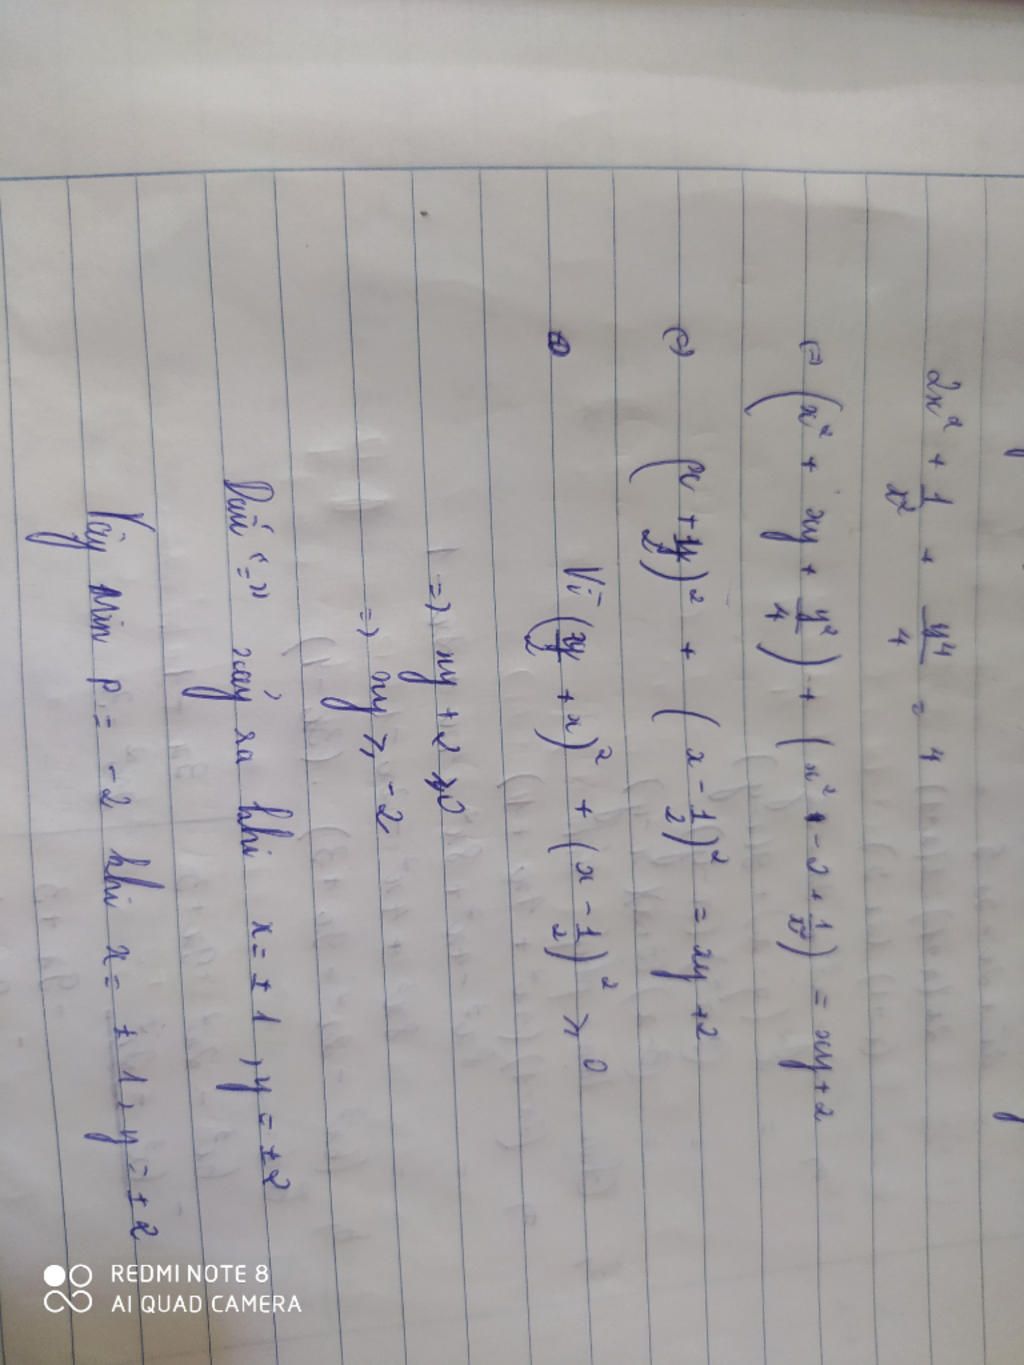 2x² + 1/x² + y⁴/4 = 4
(=) (x² + xy + y²/4) + (x² - 2 + 1/x²) = xy + 2
(=) (x + y/2)² + (x - 1/2)² = xy + 2
Vì (y/2 + x)² + (x - 1/2)² ⩾ 0
=) xy + 2 ⩾ 0
=) xy ⩾ -2
Dấu "=" xảy ra khi x = ± 1, y = ±2
Vậy Min P = -2 khi x = ± 1, y = ± 2
REDMI NOTE 8
AI QUAD CAMERA